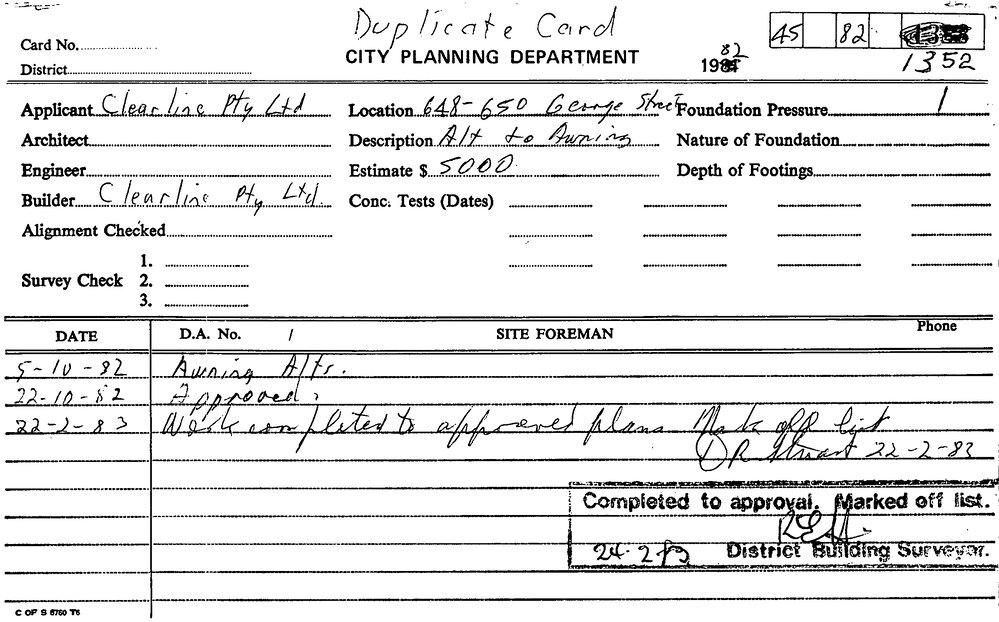 Duplicate Card
Card No.
CITY PLANNING DEPARTMENT
1982
45 82
1352
District
Applicant Clearline Pty Ltd
Location 648-650 George Street
Foundation Pressure /
Architect
Description Alt to Awning
Nature of Foundation
Engineer
Estimate $ 5000
Depth of Footings
Builder Clearline Pty Ltd.
Conc. Tests (Dates)
Alignment Checked
Survey Check 1.
2.
3.
DATE D.A. No. / SITE FOREMAN Phone
5-10-82 Awning Alts.
22-10-82 Approved.
22-2-83 Work completed to approved plans Mark off list
D R Stuart 22-2-83
Completed to approval. Marked off list.
24.2.83 District Building Surveyor.
C OF S 6760 T6